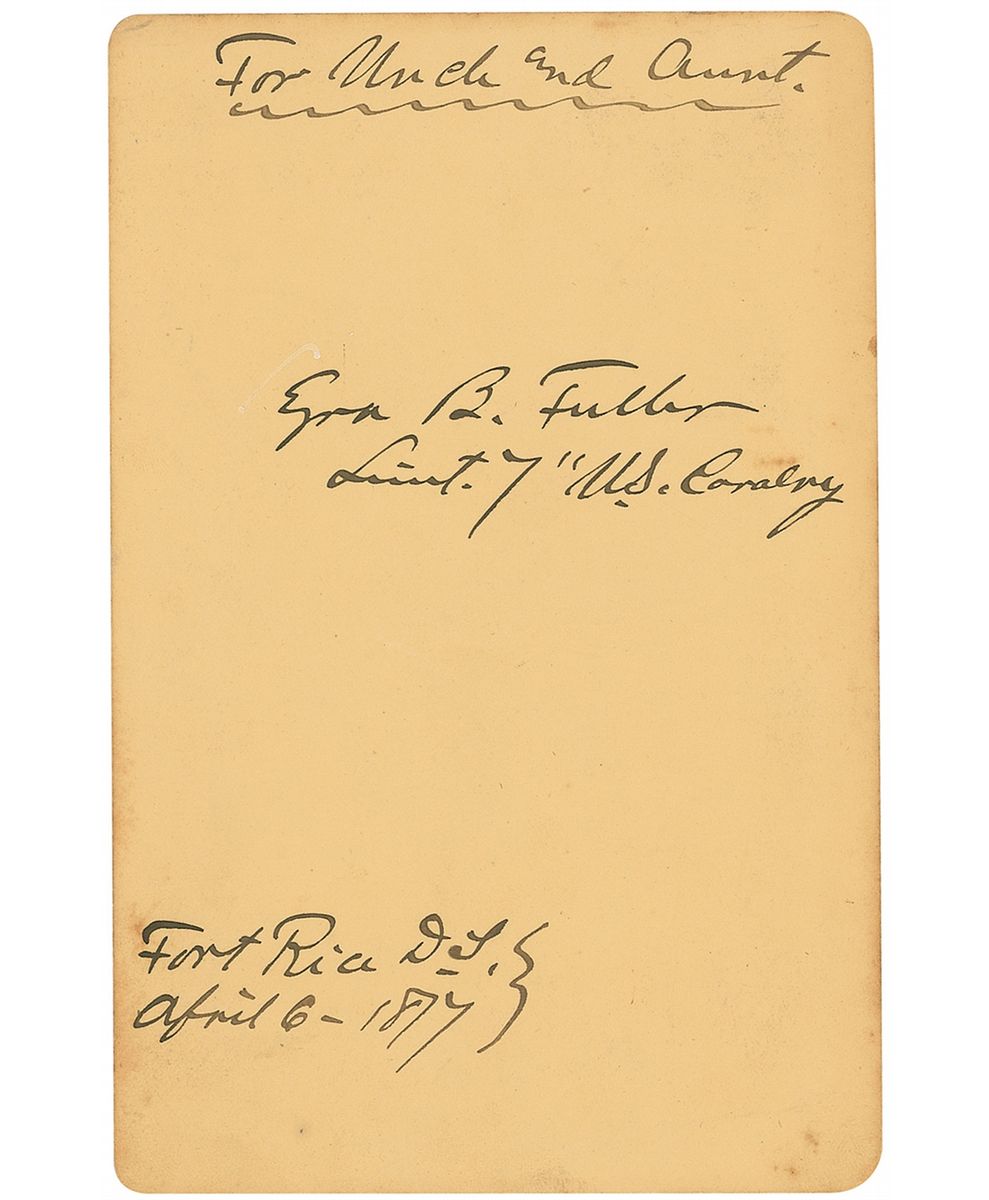 For Uncle and Aunt.
Ezra B. Fuller
Lieut. 7" U.S. Cavalry
Fort Rice D.T.
April 6 - 1877